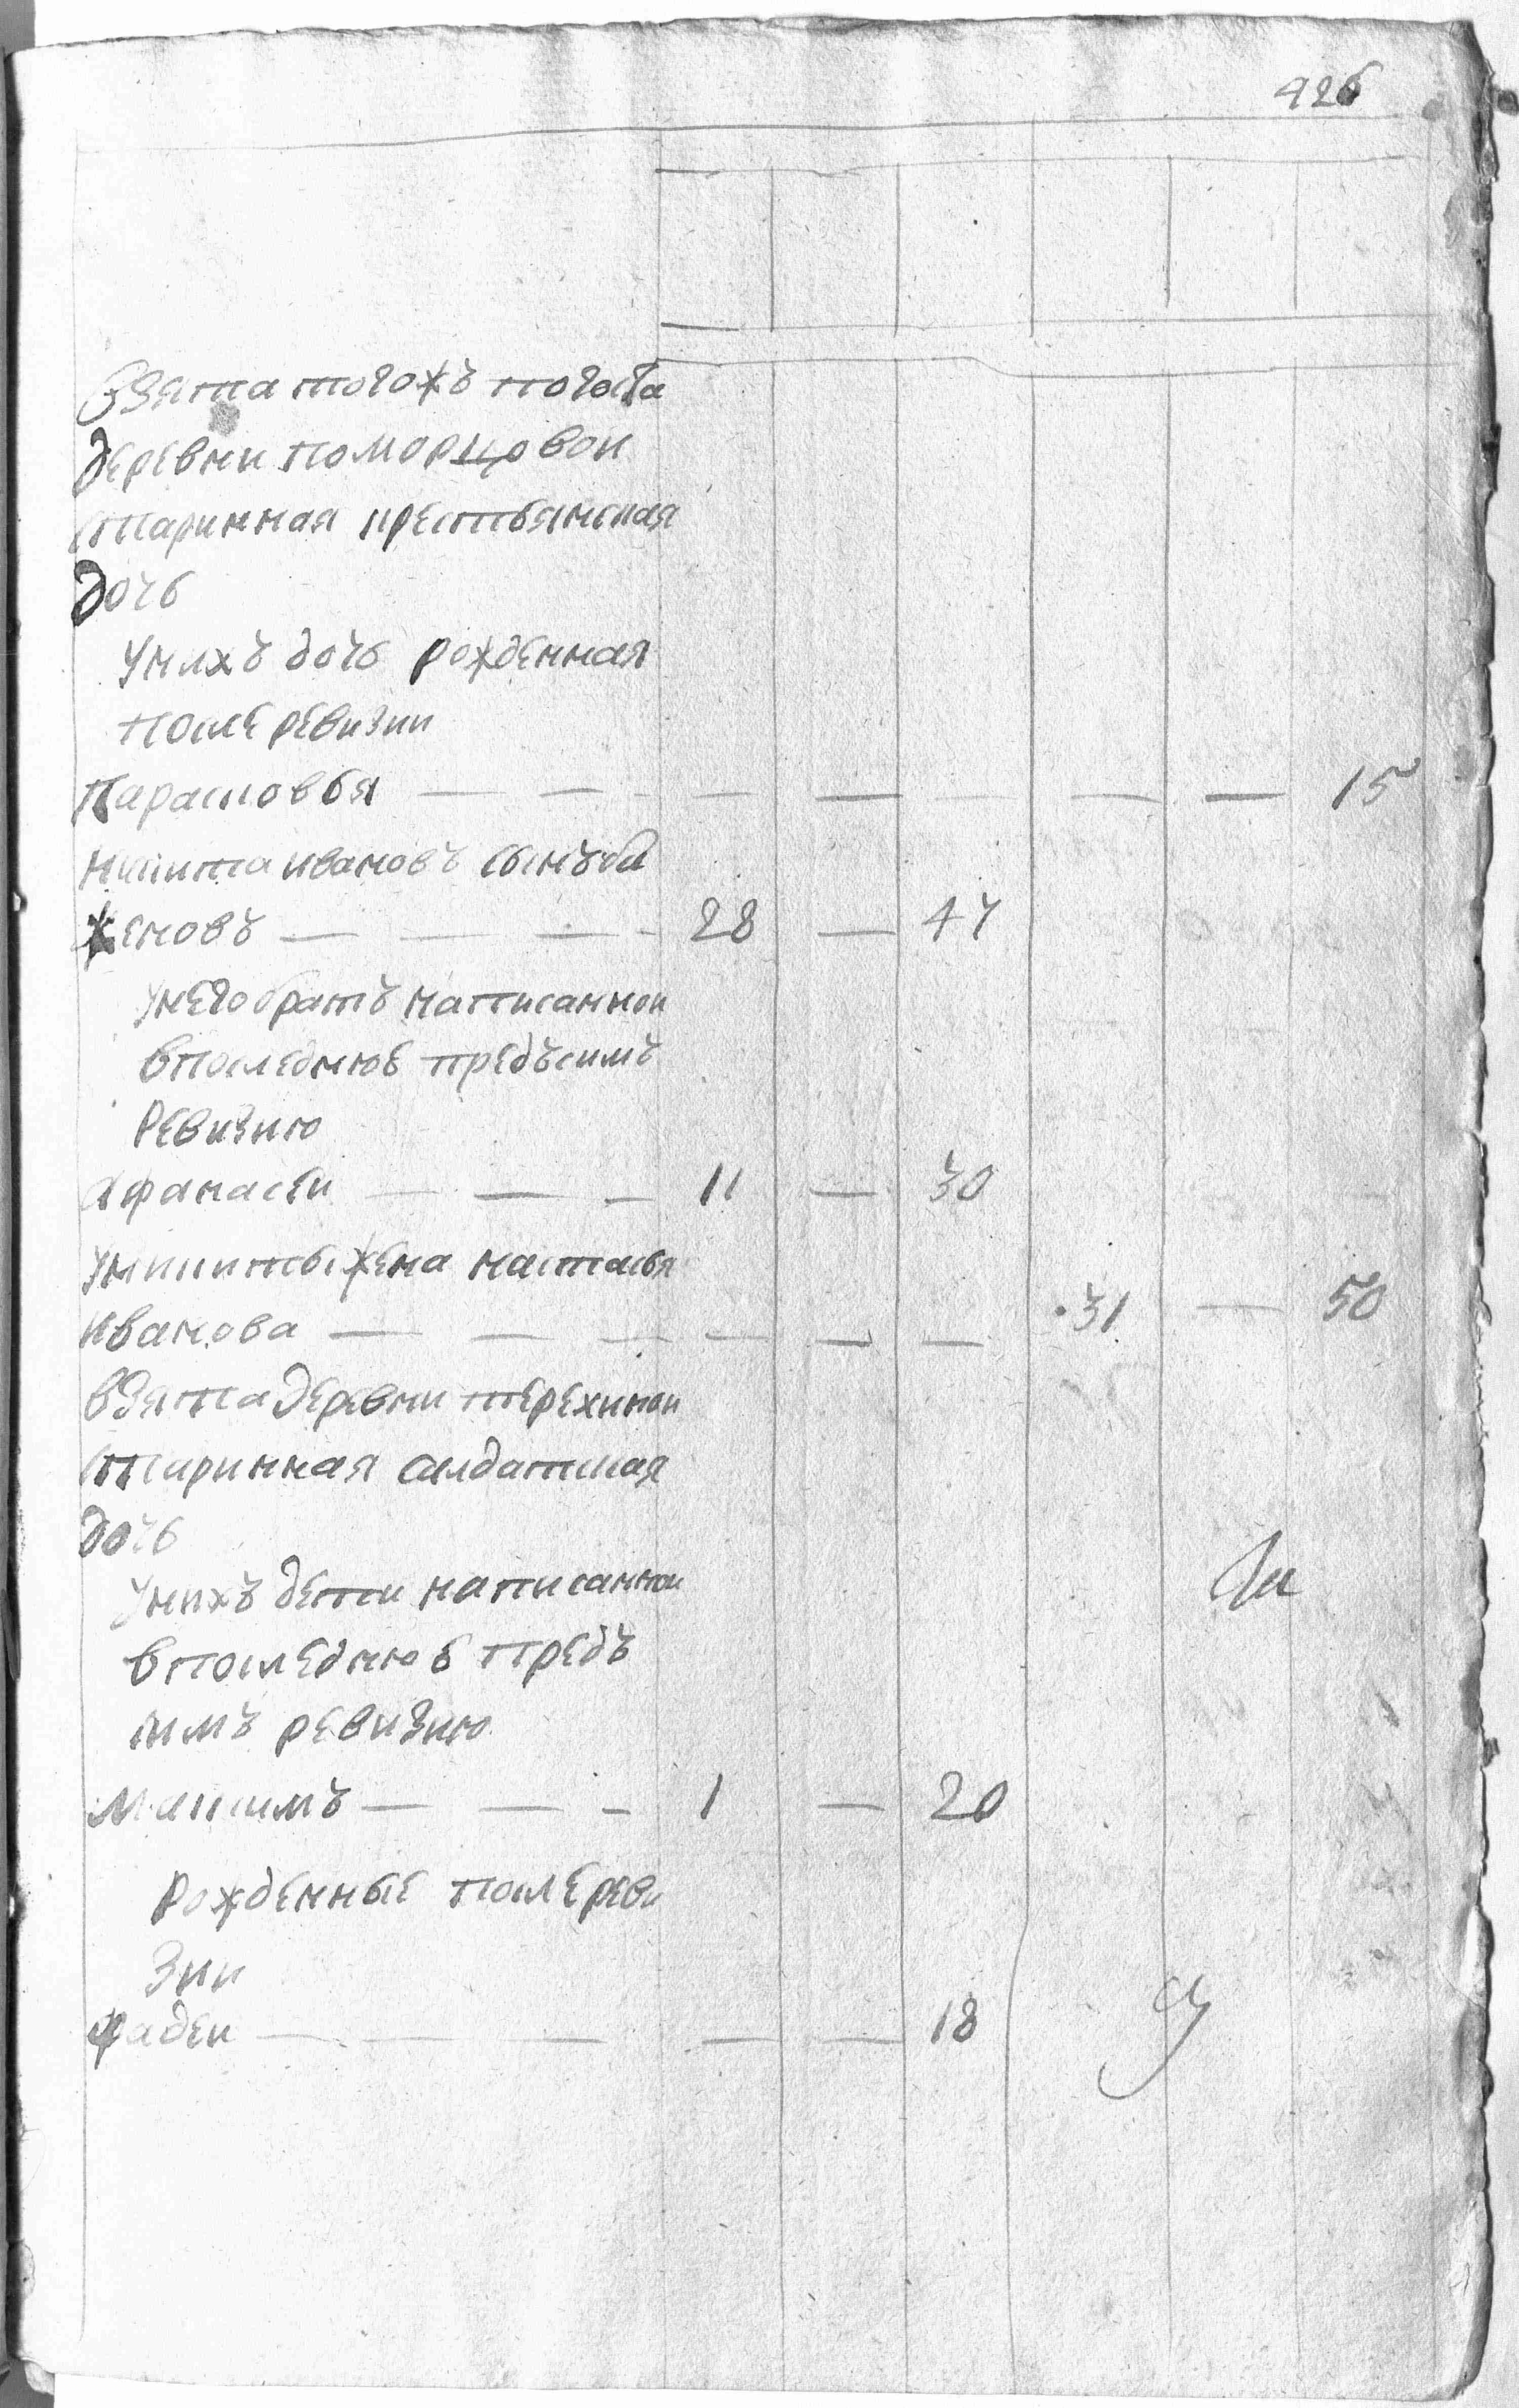 426
Взята тогожъ погоста
деревни поморцовои
старинная крестьянская
дочь
Унихъ дочь рожденная
после ревизии
Парасковья — — — — — — — 15
Никита ивановъ сынъ ба
женовъ — — — 28 — 47
Унего братъ написаннои
впоследнюе предъсимъ
Ревизию
Афанасеи — — — 11 — 30
Уникиты жена настасья
Иванова — — — — — — 31 — 50
взята деревни терехинои
старинная салдатская
дочь
Унихъ дети написаннои
впоследнюе предъ
симъ ревизию
Максимъ — — — 1 — 20
Рожденные после реви
зии
Фадеи — — — — — 18